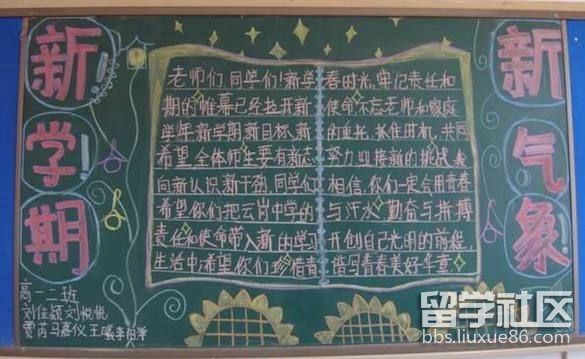 新学期
老师们同学们!新学
期的帷幕已经拉开新
学年新学期新目标、新
希望,全体师生要有新志
向新认识新干劲,同学们
希望你们把云岗中学的
责任和使命带入新的学习
生活中;希望你们珍惜青
春时光,牢记责任和
使命不忘老师和家庭
的重托,抓住时机,共同
努力迎接新的挑战,我
相信,你们一定会用青春
与汗水,勤奋与拼搏
开创自己光明的前程,
谱写青春美好年章
新气象
高一二班
刘佳颖刘悦悦
贾芮马嘉仪王
留学社区
bbs.liuxue86.com